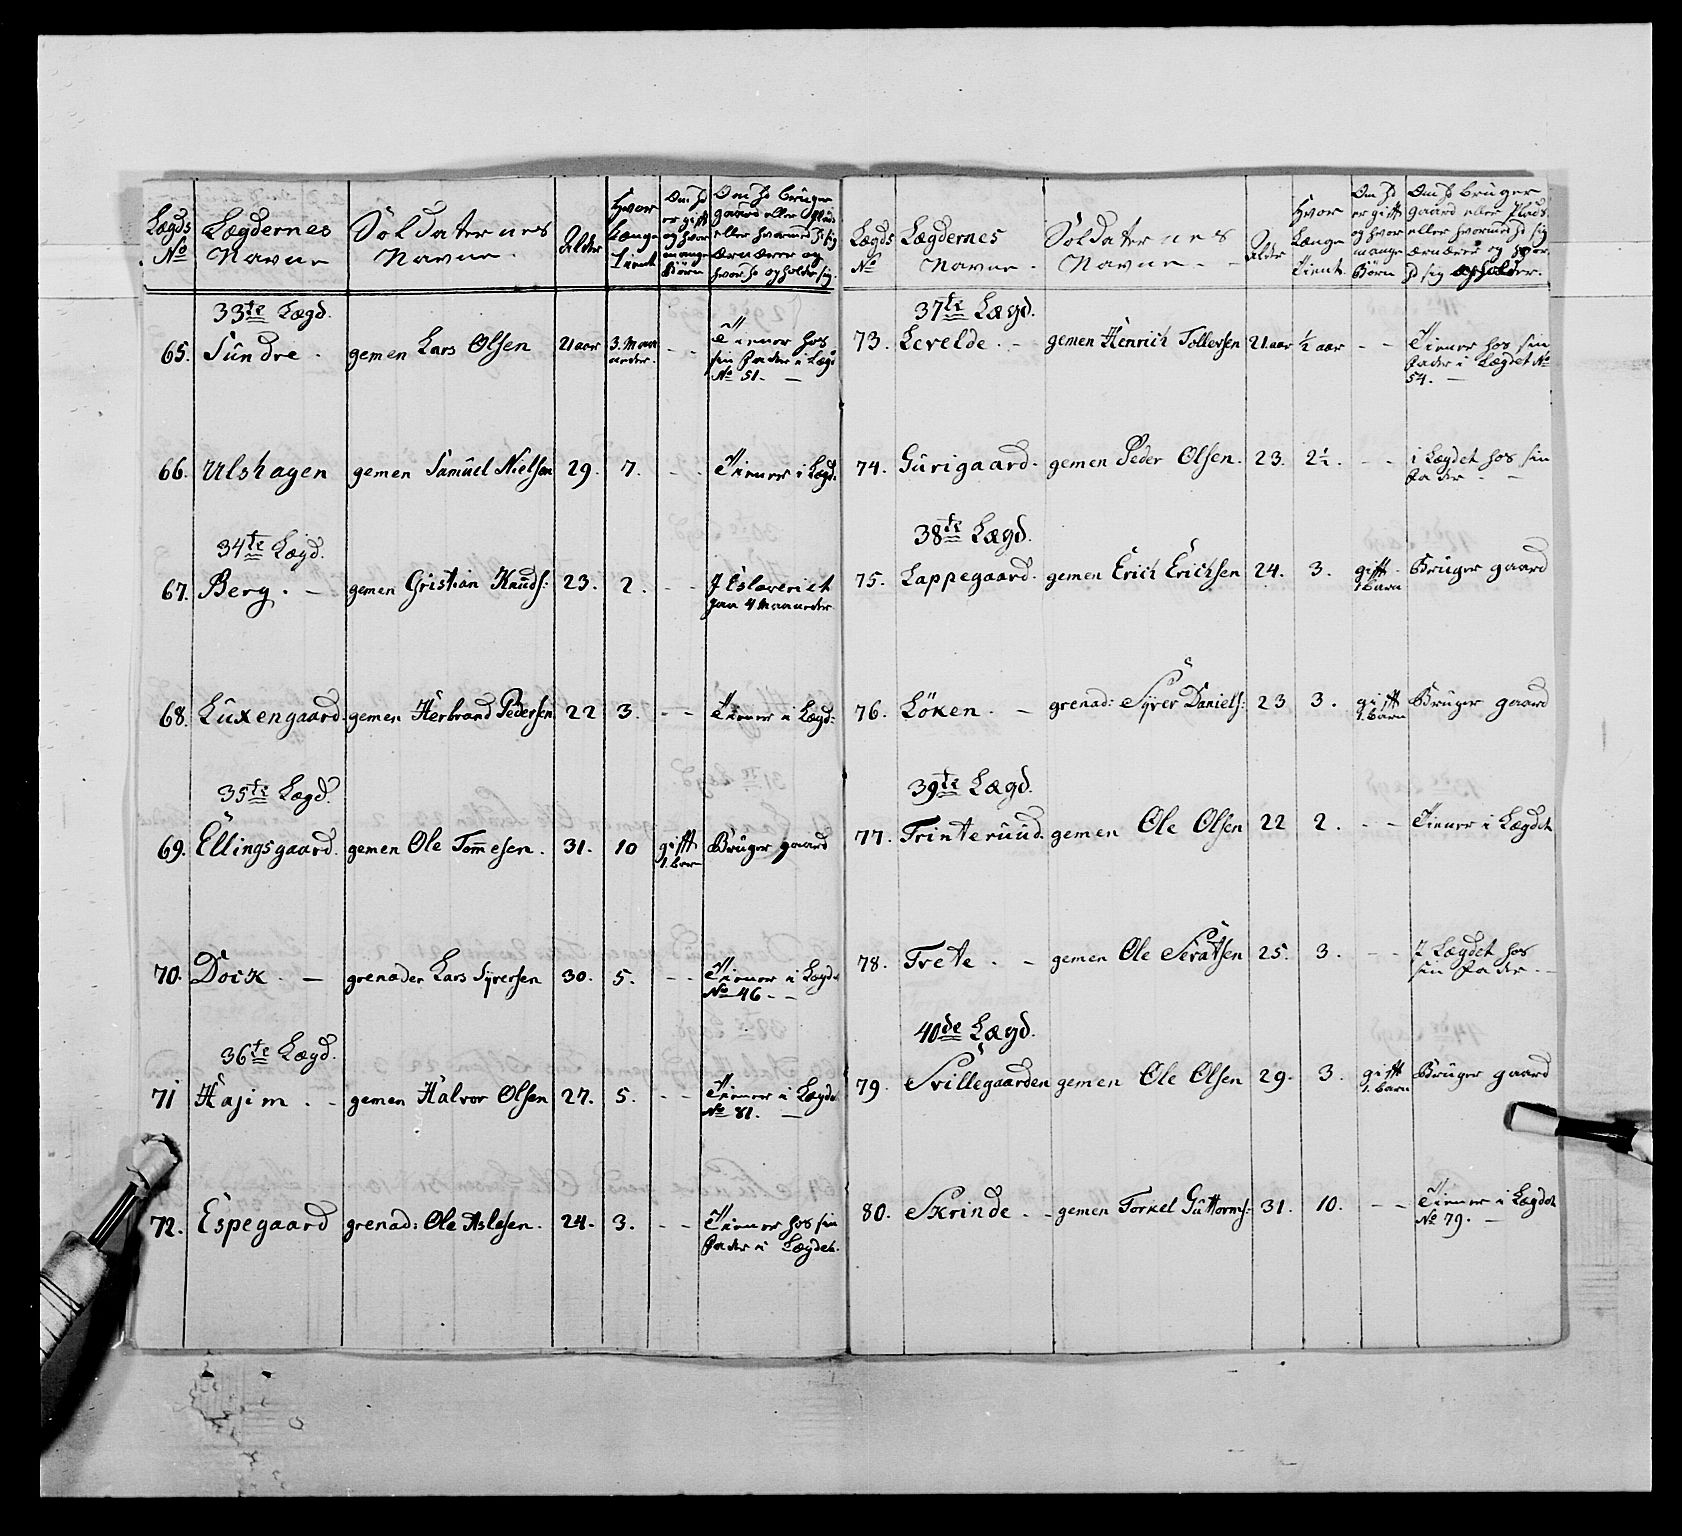 Lægds No | Lægdernes Navne | Soldaternes Navne | Alder | Hvor længe tient | Om hd er gift og hvor mange Börn | Om hd bruger gaard eller Plads eller hvormed hd sig ernærer og hvor hd opholder sig
33te Lægd.
65. Sundre. gemen Lars Olsen 21 aar 3. Maaaneder. - - Tiener hos
sin Fader i Lægd
No 51. -
66. Ulshagen gemen Samuel Nielsen 29. 7. - - Tiener i Lægd.
34te Lægd.
67. Berg. - gemen Cristian Knuds: 23. 2. - - I Slaveriet
paa 4 Maaneder
68. Luxengaard. gemen Herbrand Pedersen 22 3. - - Tiener i Lægd:
35te Lægd.
69. Ellingsgaard. gemen Ole Tom̄esen. 31. 10 gift Bruger gaard
1. Barn
70. Dock. - grenader Lars Syversen 30. 5. - - Tiener i Lægdet
No 46. - -
36te Lægd.
71 Hajim. - gemen Halvor Olsen 27. 5. - - Tiener i Lægdet
No 81. -
72. Espegaard grenad: Ole Aslesen. 24. 3. - - Tiener hos sin
Fader i Lægdet.
Lægds No | Lægdernes Navne. | Soldaternes Navne. - | Alder | Hvor Længe Tient. | Om hd er gift og hvor mange Börn | Om hd bruger gaard eller Plads eller hvormed hd sig ernærer og hvor hd sig opholder.
37te Lægd.
73. Levelde. - gemen Henrich Tollefsen 21. aar ½ aar - - Tiener hos sin
Fader i Lægdet No
54. -
74. Gurigaard. gemen Peder Olsen. 23. 2½. - - i Lægdet hos sin
Fader. -
38te Lægd.
75. Lappegaard. gemen Erich Erichsen 24. 3. gift Bruger gaard
1 Barn
76. Löken. - grenad: Syver Daniels: 23 3. gift Bruger gaard
1. Barn
39te Lægd.
77. Trinterud. gemen Ole Olsen 22 2. - - Tiener i Lægdet
78. Trete. - gemen Ole 25. 3. - - I Lægdet hos
sin Fader. -
40de Lægd.
79. Svillegaarden gemen Ole Olsen 29. 3. gift Bruger gaard
1. Barn
80. Skrinde. - gemen Torkel Guttorms: 31. 10. - - Tiener i Lægdet
No 79. -